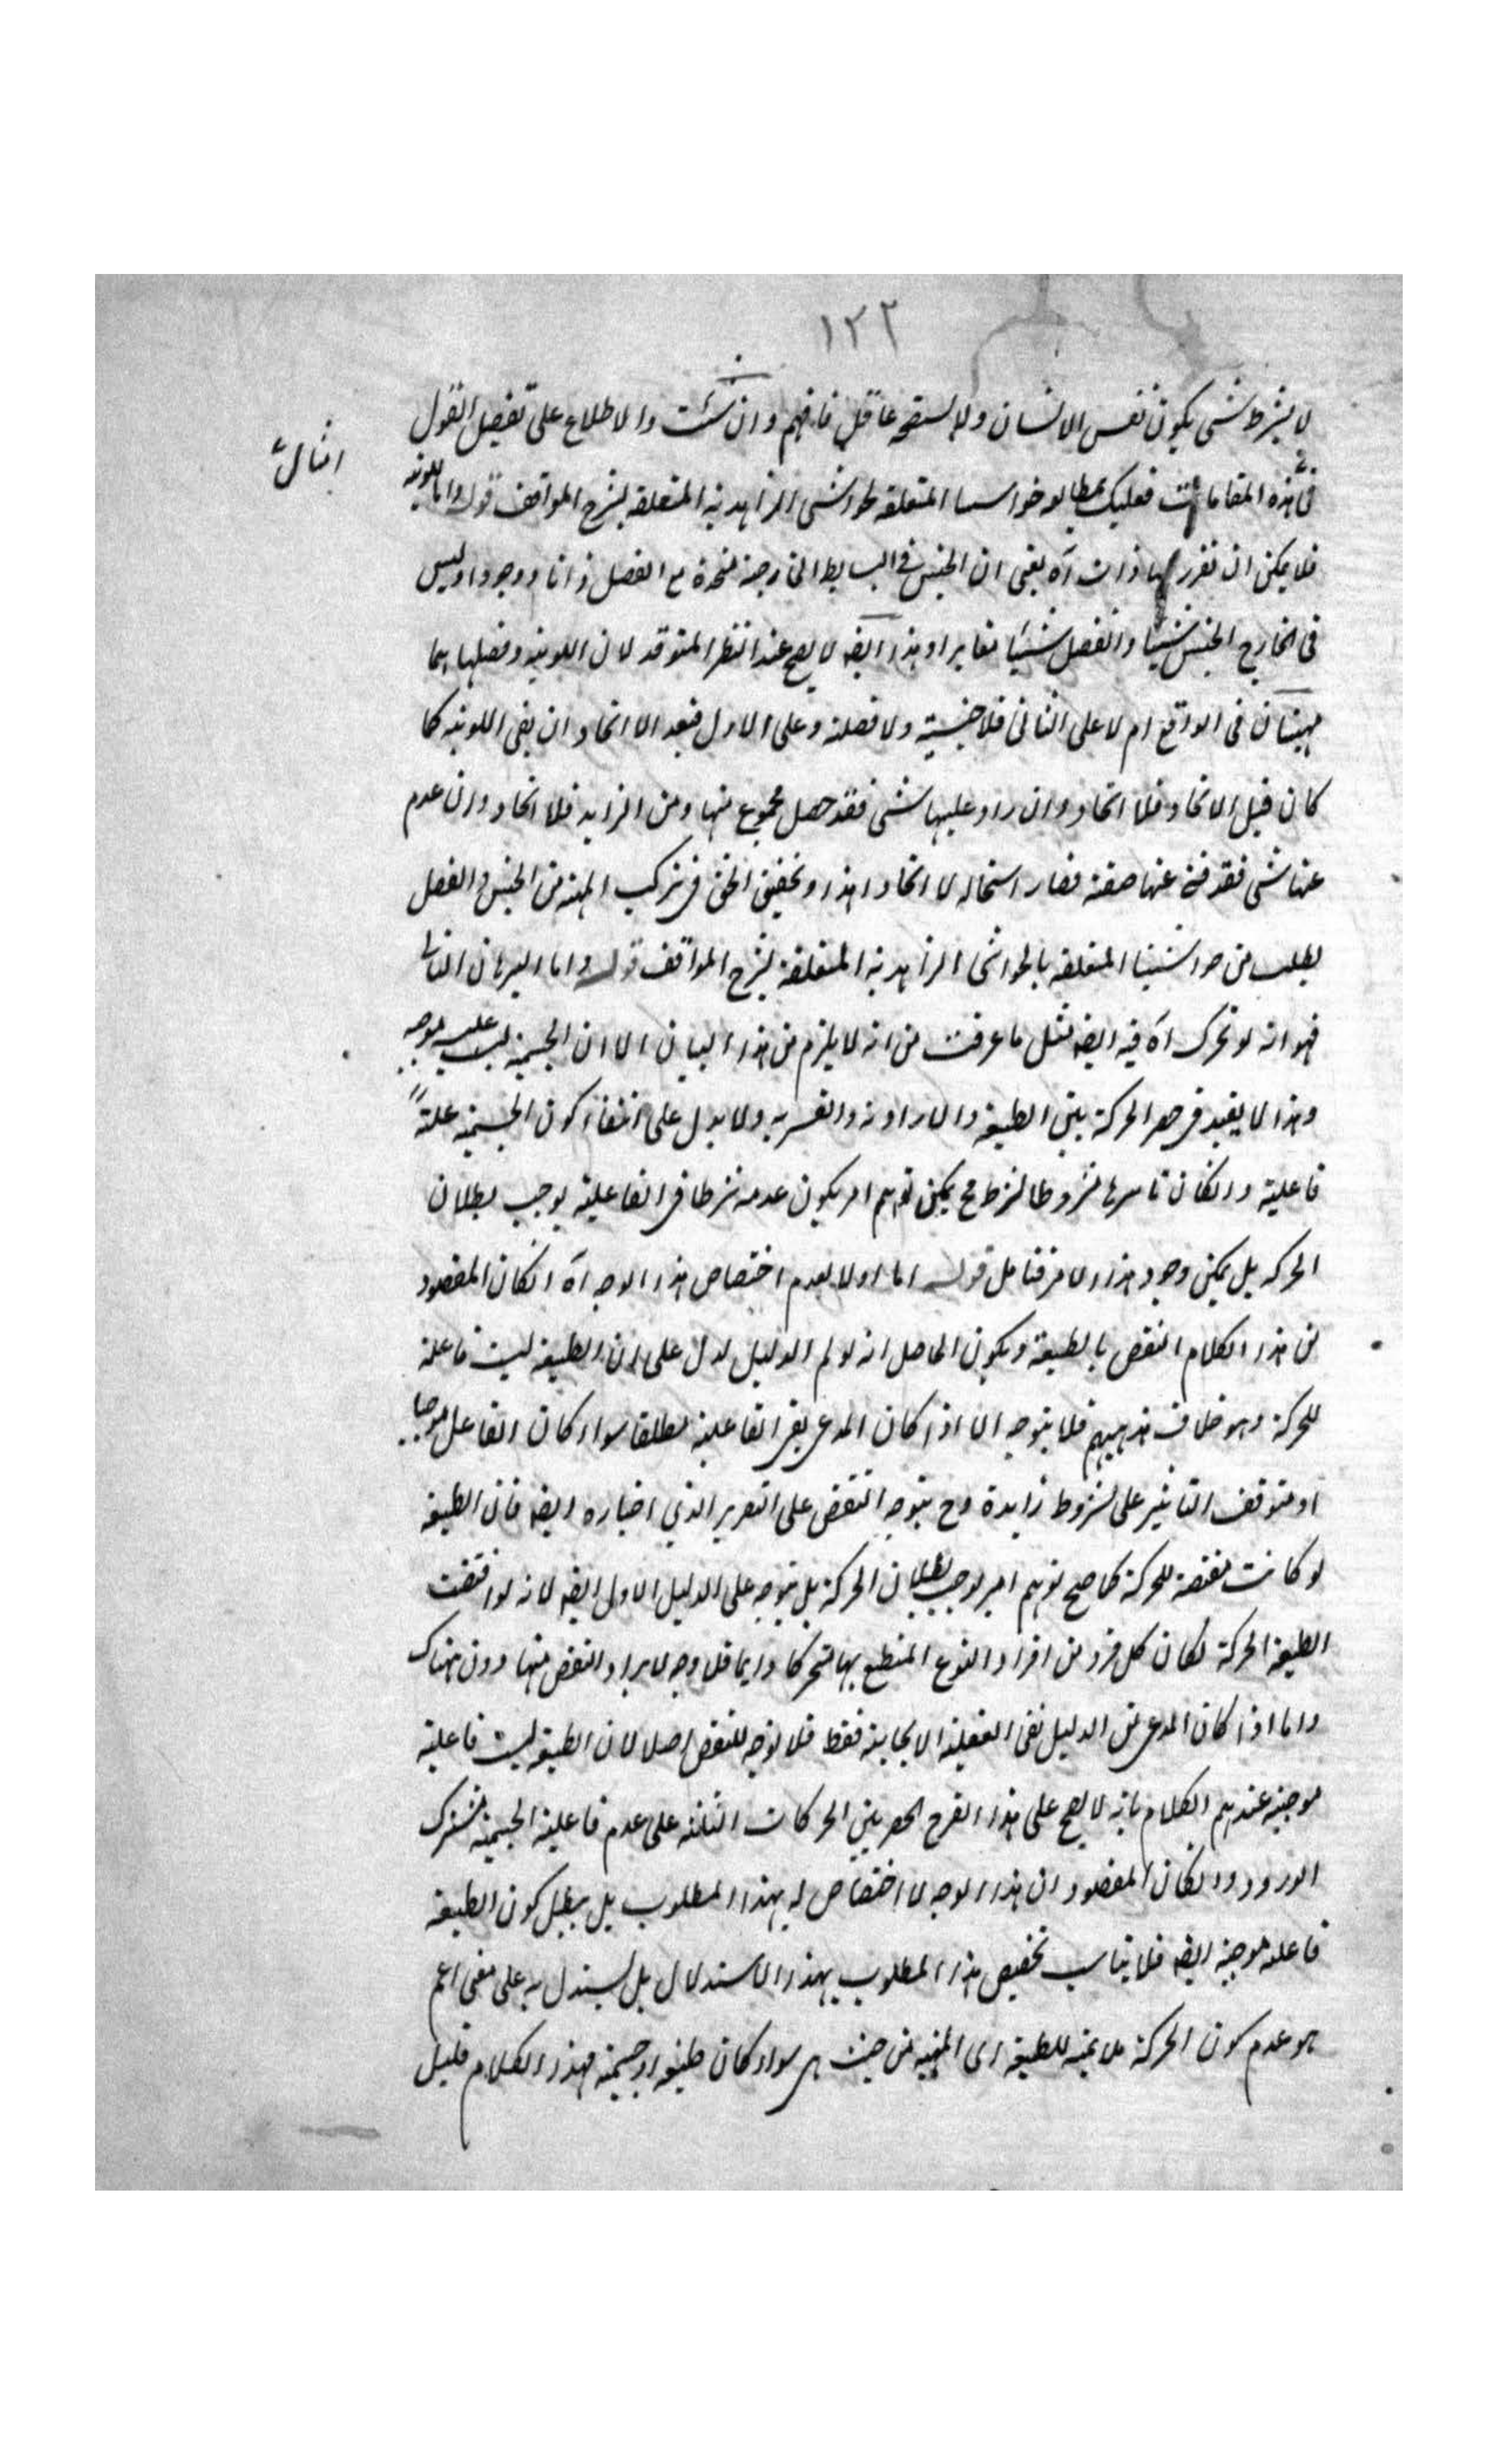 ١٢٢
لا بشرط شئ يكون نفس الانسان ولا يستقحه عاقل فافهم وان شئت والاطلاع على تفصيل القول
امثال
فى هذه المقامات فعليك بمطالعه حواسسا المتعلقه لحواشى الزاهديه المتعلقه بشرح المواقف قوله واما اللونيه
فلا يمكن ان تقرر لها ذات آه يعنى ان الجنس فى البسايط الخارجية متحدة مع الفصل ذاتا ووجودا وليس
فى الخارج الجنس شيئا والفصل شيئا مغايرا وهذا ايضه لا يصح عند النظر المتوقد لان اللونيه وفصلها هما
مهيتان فى الواقع ام لا على الثانى فلا جنسية ولا فصلية وعلى الاول فبعد الاتحاد ان بقى اللونيه كما
كان قبل الاتحاد فلا اتحاد وان زاد عليها شئ فقد حصل مجموع منها ومن الزايد فلا اتحاد وان عدم
عنها شئ فقد عنها صفة فصار استحاله لا اتحادا هذا وتحقيق الحق فى تركيب المهيه من الجنس والفصل
يطلب من حواشينا المتعلقه بالحواشى الزاهديه المتعلقة بشرح المواقف قوله واما البرهان الثانى
فهو انه لو تحرك آه فيه ايضه مثل ما عرفت من انه لا يلزم من هذا البيان الا ان الجسمية ليست علية موجبه
وهذا لا يفيد فى حصر الحركة بين الطبيعة والارادية والقسريه ولا يدل على انتفاء كون الجسميه علة
فاعلية وانكان تاثيرها مشروطا بشرط مح يمكن توهم امر يكون عدمه شرطا فى الفاعلية يوجب بطلان
الحركه بل يمكن وجود هذا الامر فتامل قوله اما اولا بعدم اختصاص هذا الوجه آه انكان المقصود
من هذا الكلام النقض بالطبيعة ويكون الحاصل انه لو تم الدليل لدل على ان الطبيعه ليست فاعلة
للحركة وهو خلاف مذهبهم فلا يتوجه الا اذا كان المدعى نفى الفاعلية مطلقا سواء كان الفاعل موجبا
او متوقف التاثير على شروط زايدة وح يتوجه النقض على التقرير الذي اختاره ايضه فان الطبيعه
لو كانت مقتضه للحركة لما صح توهم امر يوجب بطلان الحركة بل يتوجه على الدليل الاول ايضه لانه لو اقتضت
الطبيعه الحركة لكان كل فرد من افراد النوع المنطبع بها متحركا دايما فلا وجه لايراد النقض منها دون هناك
واما اذا كان المدعى من الدليل نفى الايجابية فقط فلا توجه للنقض اصلا لان الطبيعة ليست فاعلية
موجبه عندهم الكلام بانه لا يصح على هذا الحصر بين الحركات الثلثه على عدم فاعلية الجسمية مشترك
الورود وانكان المقصود ان هذا الوجه لا اختصاص له بهذا المطلوب بل يبطل كون الطبيعه
فاعله موجبه ايضه فلا يناسب تخصيص هذا المطلوب بهذا الاستدلال بل يستدل به على معنى اعم
هو عدم كون الحركة ملايمه للطبيعه اى المهيه من حيث هى سواء كان طبيعه او جسميه فهذا الكلام قليل